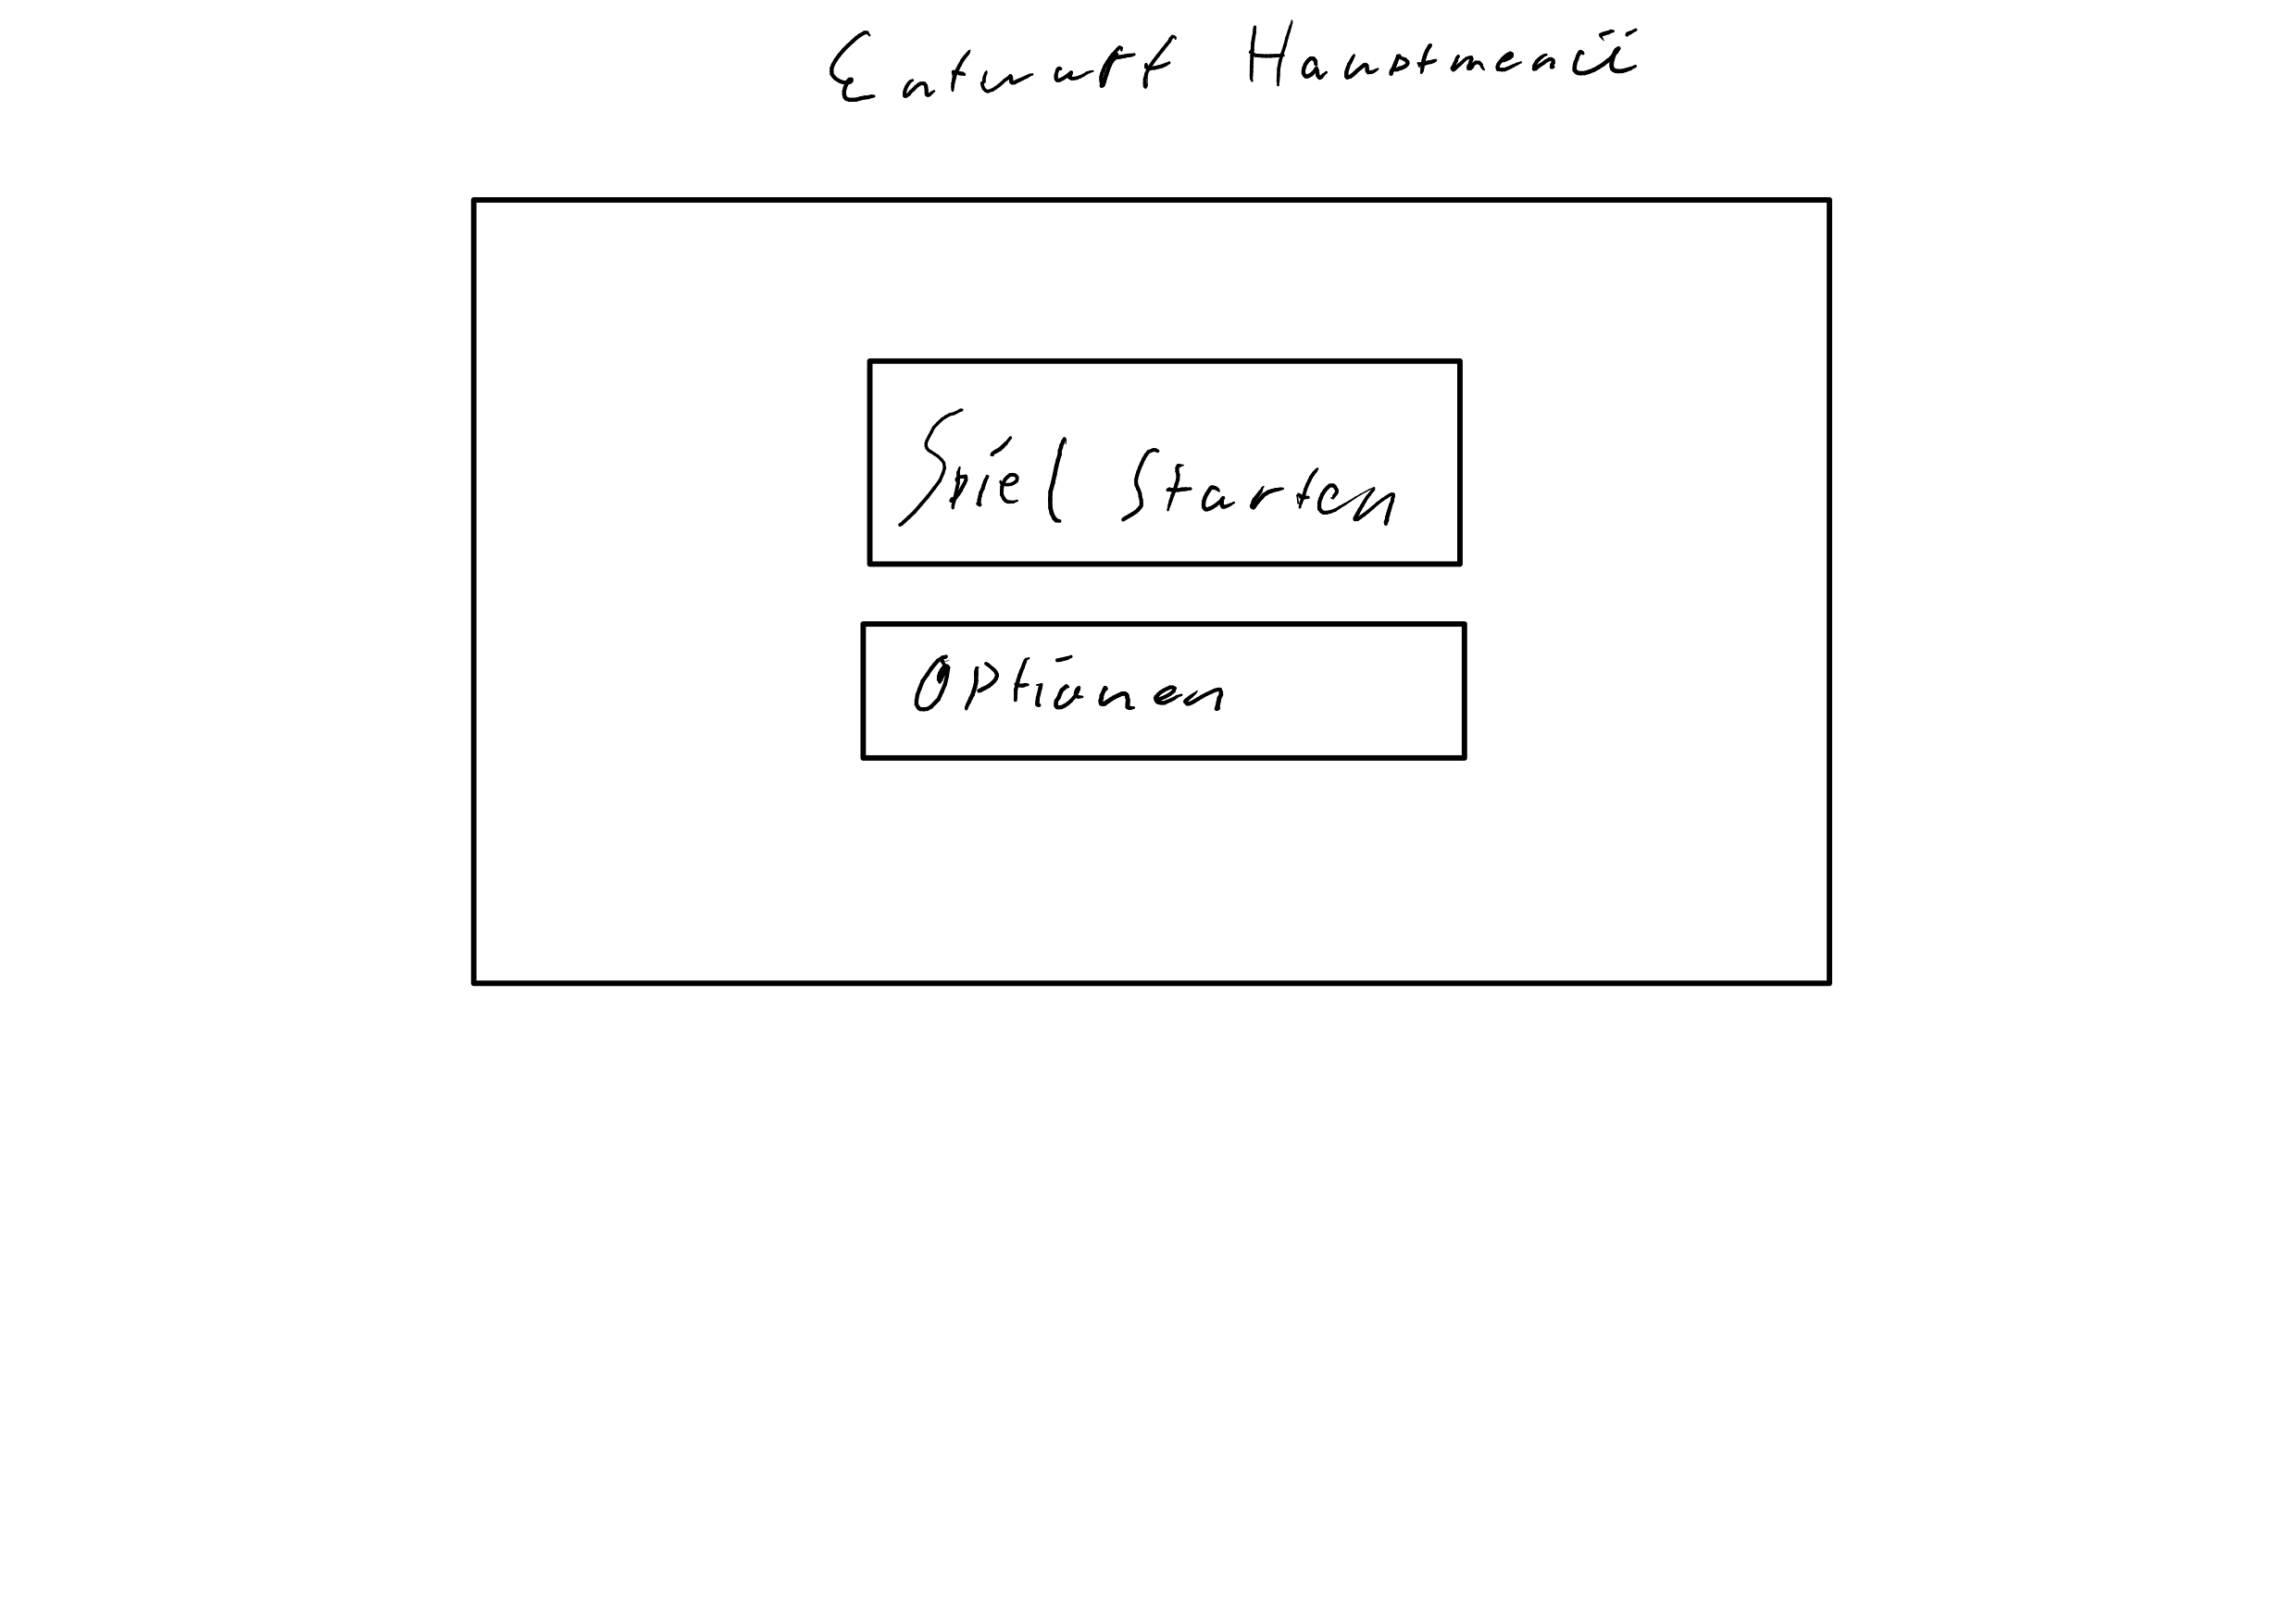 Entwurf Hauptmenü
Spiel Starten
Optionen